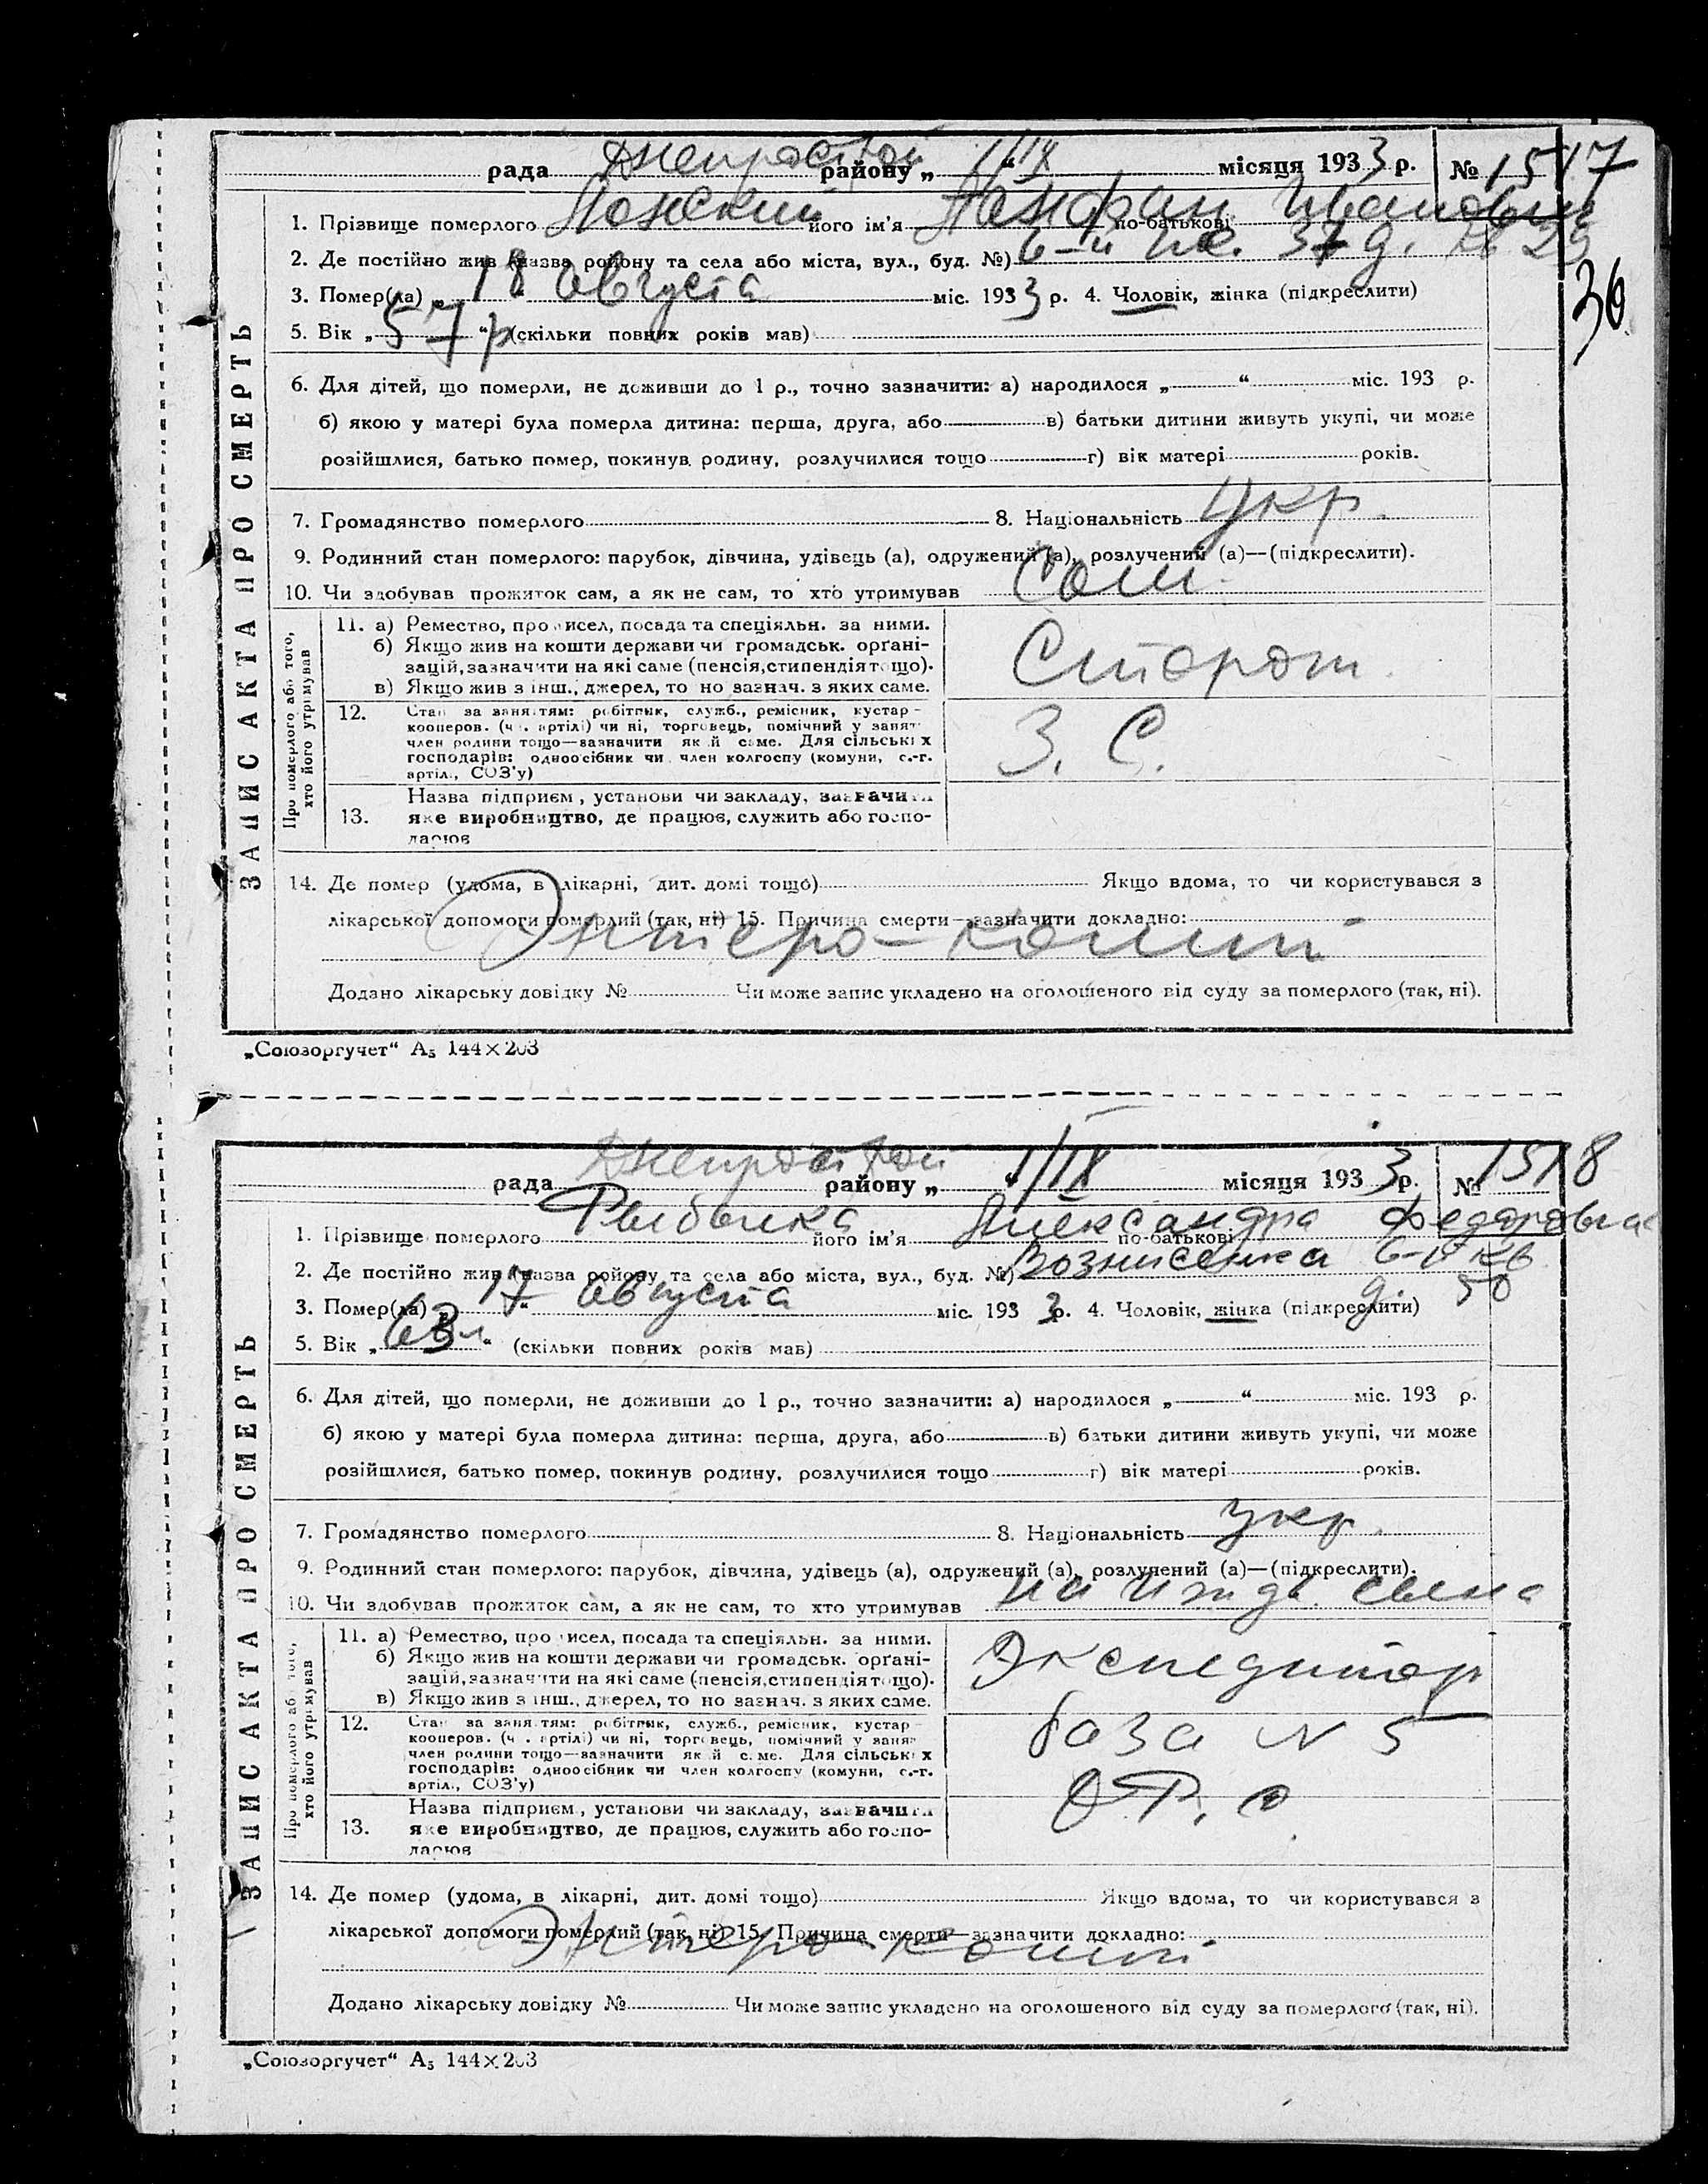 Днепрострой
рада району „ 1/IX “ місяця 1933 р. № 1517
1. Прізвище померлого його ім'я Иванович по-батькові
2. Де постійно жив (назва району та села або міста, вул., буд. №) 6-й д. кв 25
36
3. Помер(ла) „ 18 “ августа міс. 1933 р. 4. Чоловік, жінка (підкреслити)
5. Вік „ 57 “ р (скільки повних років мав)
6. Для дітей, що померли, не доживши до 1 р., точно зазначити: а) народилося „ “ міс. 193 р.
б) якою у матері була померла дитина: перша, друга, або в) батьки дитини живуть укупі, чи може
розійшлися, батько помер, покинув родину, розлучилися тощо г) вік матері років.
7. Громадянство померлого 8. Національність Укр.
9. Родинний стан померлого: парубок, дівчина, удівець (а), одружений (а), розлучений (а)—(підкреслити).
10. Чи здобував прожиток сам, а як не сам, то хто утримував Сам.
ЗАПИС АКТА ПРО СМЕРТЬ
Про померлого або того, хто його утримував
11. а) Ремество, про исел, посада та спеціяльн. за ними.
б) Якщо жив на кошти держави чи громадськ. орґані-
зацій, зазначити на які саме (пенсія, стипендія тощо).
в) Якщо жив з інш., джерел, то но зазнач. з яких саме.
Сторож.
12. Стан за заняттям: робітник, служб., ремісник, кустар -
кооперов. (чл. артілі) чи ні, торговець, помічний у занят
член родини тощо—зазначити який саме. Для сільських
господарів: одноосібник чи член колгоспу (комуни, с.-г.
артіл., СОЗ'у)
З. С.
13. Назва підприєм, установи чи закладу, зазначити
яке виробництво, де працює, служить або госпо-
дарює
14. Де помер (удома, в лікарні, дит. домі тощо) Якщо вдома, то чи користувався з
лікарської допомоги померлий (так, ні) 15. Причина смерти—зазначити докладно:
Энтеро-колит
Додано лікарську довідку № Чи може запис укладено на оголошеного від суду за померлого (так, ні).
„Союзоргучет“ А5 144×203
Днепрострой
рада району „ 1/IX “ місяця 1933 р. № 1518
1. Прізвище померлого Рыбалка його ім'я Александра по-батькові Федоровна
2. Де постійно жив (назва району та села або міста, вул., буд. №) Вознисенка 6-й кв
д. 50
3. Помер(ла) „ 17 “ августа міс. 1933 р. 4. Чоловік, жінка (підкреслити)
5. Вік „ 63 л. “ (скільки повних років мав)
6. Для дітей, що померли, не доживши до 1 р., точно зазначити: а) народилося „ “ міс. 193 р.
б) якою у матері була померла дитина: перша, друга, або в) батьки дитини живуть укупі, чи може
розійшлися, батько помер, покинув родину, розлучилися тощо г) вік матері років.
7. Громадянство померлого 8. Національність Укр.
9. Родинний стан померлого: парубок, дівчина, удівець (а), одружений (а), розлучений (а)—(підкреслити).
10. Чи здобував прожиток сам, а як не сам, то хто утримував на ижд. сына
ЗАПИС АКТА ПРО СМЕРТЬ
Про померлого або того, хто його утримував
11. а) Ремество, про исел, посада та спеціяльн. за ними.
б) Якщо жив на кошти держави чи громадськ. орґані-
зацій, зазначити на які саме (пенсія, стипендія тощо).
в) Якщо жив з інш., джерел, то но зазнач. з яких саме.
Экспедитор
12. Стан за заняттям: робітник, служб., ремісник, кустар
кооперов. (чл. артілі) чи ні, торговець, помічний у занят
член родини тощо—зазначити який саме. Для сільських
господарів: одноосібник чи член колгоспу (комуни, с.-г.
артіл., СОЗ'у)
база N 5
13. Назва підприєм, установи чи закладу, зазначити
яке виробництво, де працює, служить або госпо-
дарює
О.Р.С.
14. Де помер (удома, в лікарні, дит. домі тощо) Якщо вдома, то чи користувався з
лікарської допомоги померлий (так, ні) 15. Причина смерти—зазначити докладно:
Энтеро-колит
Додано лікарську довідку № Чи може запис укладено на оголошеного від суду за померлого (так, ні).
„Союзоргучет“ А5 144×203